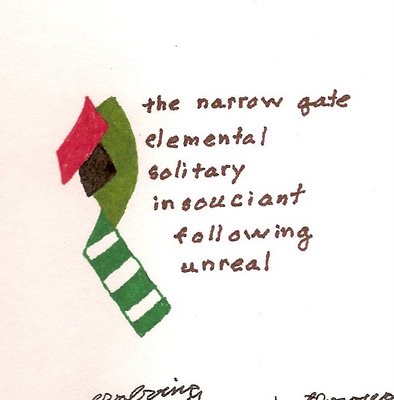 the narrow gate
elemental
solitary
insouciant
following
unreal